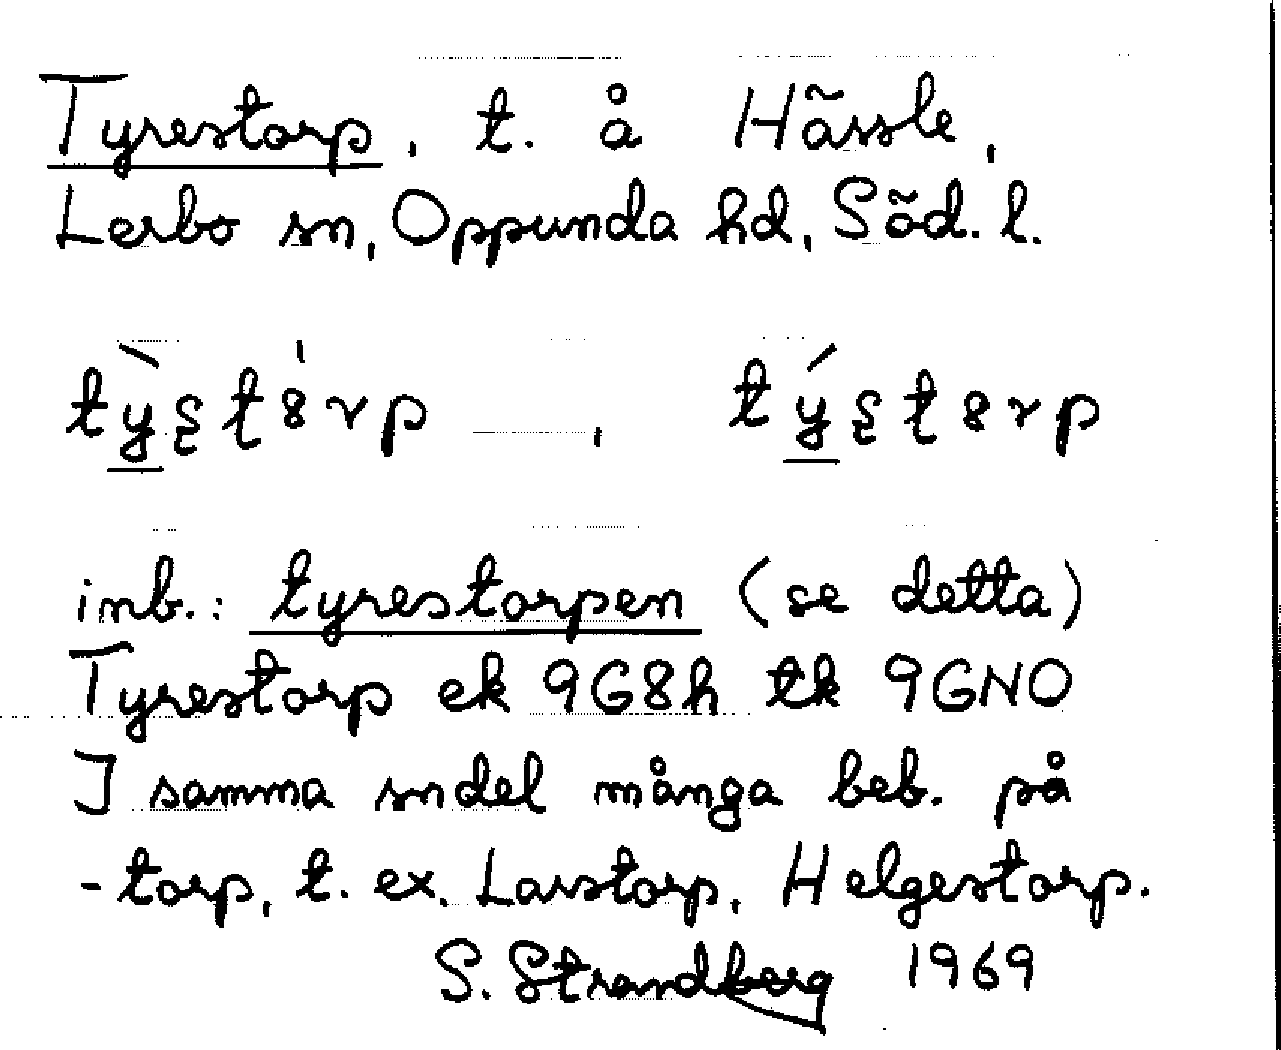 Tyrestorp, t. å Hässle,
Lerbo sn, Oppunda hd, Söd. l.
inb.: tyrestorpen (se detta)
Tyrestorp ek 9G8h tk 9GNO
I samma sndel många beb. på
-torp, t. ex. Larstorp, Helgestorp.
S. Strandberg 1969